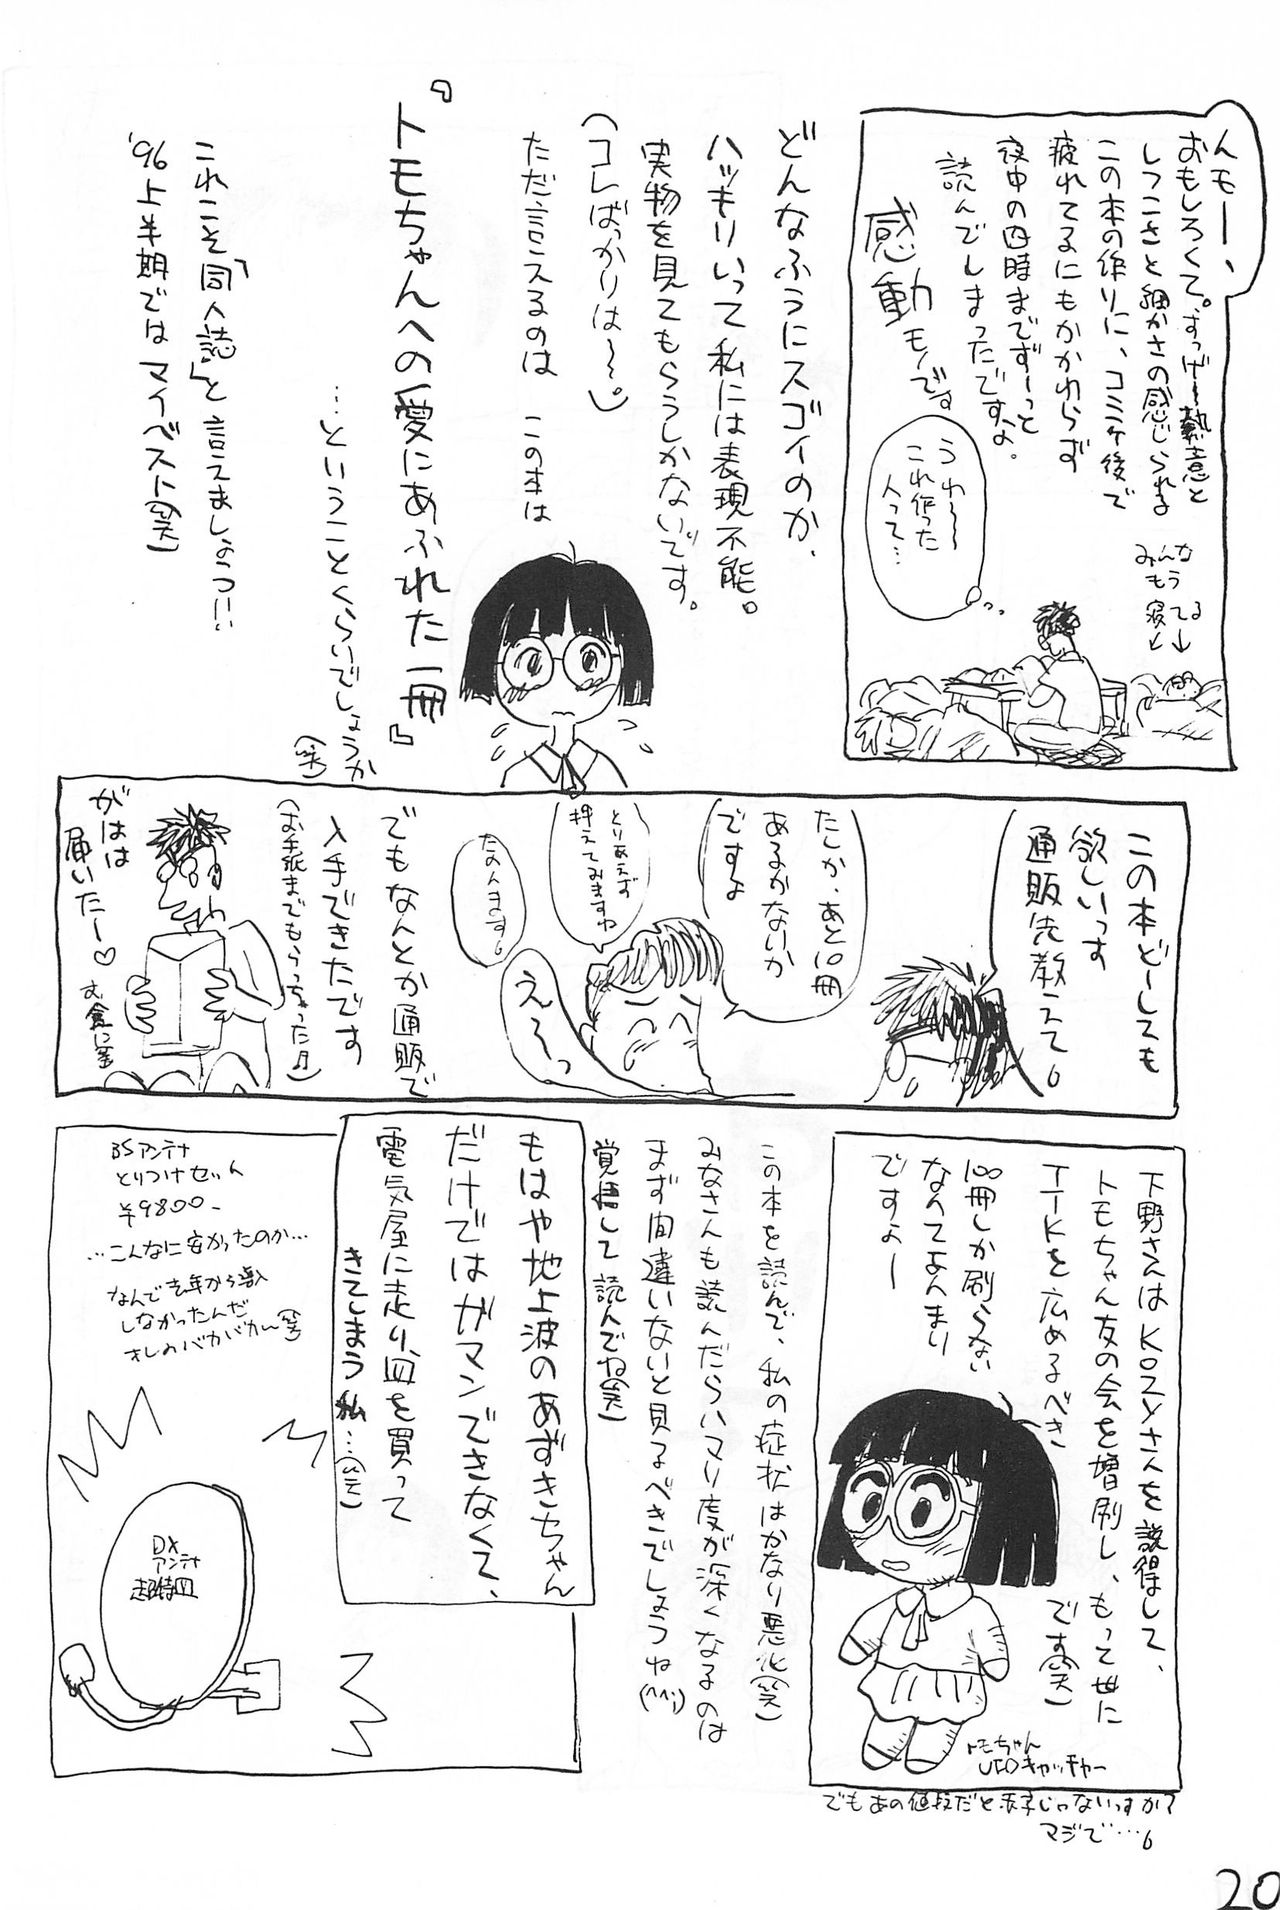 んもー、
おもしろくて。すっげ〜熱意と
しつこさと細かさの感じられる
この本の作りに、コミケ後で
疲れてるにもかかわらず
夜中の四時までずーっと
読んでしまったですよ。
感動モノです
うわ〜
これ作った
人って…
みんな
もう
寝てる
どんなふうにスゴイのか、
ハッキリいって私には表現不能。
実物を見てもらうしかないです。
(コレばっかりは〜。)
ただ言えるのは この本は
『トモちゃんへの愛にあふれた一冊』
…ということくらいでしょうか
(笑)
これこそ「同人誌」と言えましょう!!
'96上半期では マイベスト(笑)
この本どーしても
欲しいっす
通販先教えて
たしか、あと10冊
あるかないか
ですよ
とりあえず
押えてみますね
たのんます
え〜っ
でもなんとか通販で
入手できたです
(お手紙までもらっちゃった♬)
がはは
届いたー♡
下野さんはKOZYさんを説得して、
トモちゃん友の会を増刷し、もって世に
TTKを広めるべき
です(笑)
100冊しか刷らない
なんてよんまり
ですよー
トモちゃん
UFOキャッチャー
でもあの値段だと赤字じゃないっすか?
マジで…
この本を読んで、私の症状はかなり悪化(笑)
みなさんも読んだらハマリ度が深くなるのは
まず間違いないと見るべきでしょうね(^^;)
覚悟して読んでね(笑)
もはや地上波のあずきちゃん
だけではガマンできなくて、
電気屋に走り、皿を買って
きてしまう私…(笑)
BSアンテナ
とりつけセット
¥9800-
…こんなに安かったのか…
なんで去年から導入
しなかったんだ
オレのバカバカ〜(笑)
DX
アンテナ
超特皿
20